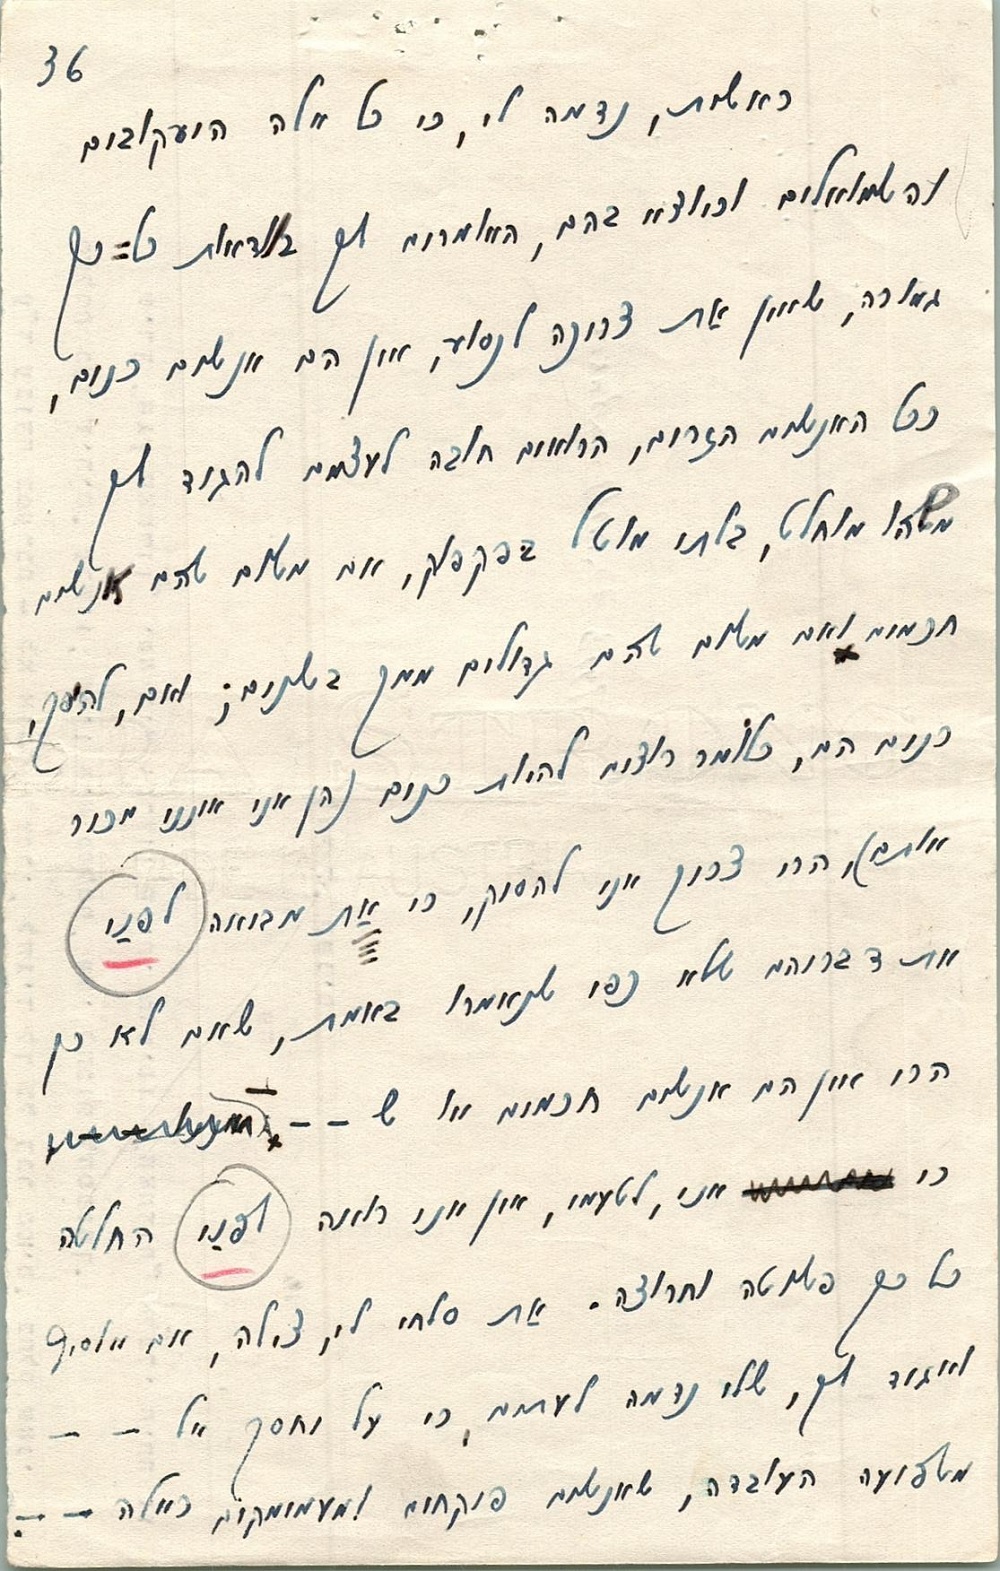 36
ראשית, נדמה לי, כי כל אלה היעקובים
והשמואלים וכיוצא בהם, האומרים לך בודאות כל=כך
גמורה, שאין אַת צריכה לנסוע, אין הם אנשים כנים,
ככל האנשים הזרים, הרואים חובה לעצמם להגיד לך
משהו מוחלט, בלתי מוטל בפקפוק, אם משום שהם אנשים
חכמים ואם משום שהם גדולים ממך בשנים; ואם, להיפך,
כנים הם, כלומר רוצים להיות כנים (הן אני אינני מכיר
אותם), הרי צריך אני להסיק, כי אַת מביאה לפנַי
את דבריהם שלא כפי שנאמרו באמת, שאם לא כן
הרי אין הם אנשים חכמים או ש – –
כי אני, לטעמי, אין אני רואה לפנַי החלטה
כל כך פשוטה וחרוצה. אַת סלחי לי, צילה, אם אוסיף
ואגיד לך, שלי נדמה לעתים, כי על יחסך אל – –
משפיעה העובדה, שאנשים פיקחים ומעמיקים כאלה – –